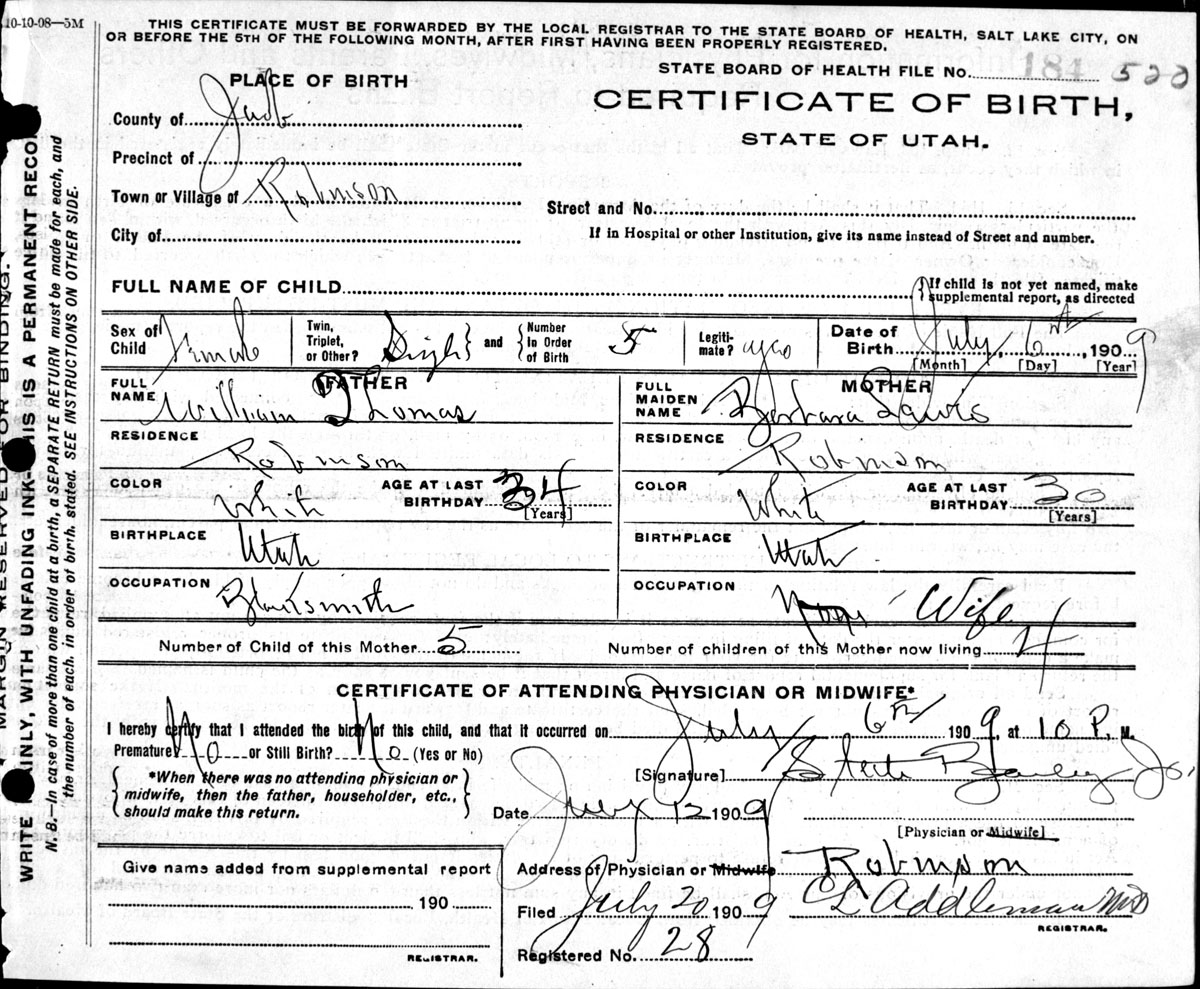 10-10-08—5M
THIS CERTIFICATE MUST BE FORWARDED BY THE LOCAL REGISTRAR TO THE STATE BOARD OF HEALTH, SALT LAKE CITY, ON
OR BEFORE THE 5TH OF THE FOLLOWING MONTH, AFTER FIRST HAVING BEEN PROPERLY REGISTERED.
PLACE OF BIRTH
STATE BOARD OF HEALTH FILE No. 184 522
CERTIFICATE OF BIRTH,
STATE OF UTAH.
County of Juab
Precinct of
Town or Village of Robinson
Street and No.
City of
If in Hospital or other Institution, give its name instead of Street and number.
FULL NAME OF CHILD
If child is not yet named, make
supplemental report, as directed
Sex of Child Female
Twin, Triplet, or Other? Single and Number In Order of Birth 5
Legitimate? yes
Date of Birth July 6th, 1909
[Month] [Day] [Year]
FATHER
FULL NAME William Thomas
RESIDENCE Robinson
COLOR White AGE AT LAST BIRTHDAY 34 [Years]
BIRTHPLACE Utah
OCCUPATION Blacksmith
MOTHER
FULL MAIDEN NAME Barbara Lewis
RESIDENCE Robinson
COLOR White AGE AT LAST BIRTHDAY 30 [Years]
BIRTHPLACE Utah
OCCUPATION Wife
Number of Child of this Mother 5 Number of children of this Mother now living 4
CERTIFICATE OF ATTENDING PHYSICIAN OR MIDWIFE*
I hereby certify that I attended the birth of this child, and that it occurred on July 6th 1909, at 10 P. M.
Premature No or Still Birth? No (Yes or No)
*When there was no attending physician or
midwife, then the father, householder, etc.,
should make this return.
[Signature] Steele Bailey Jr.
Date July 12 1909
[Physician or Midwife]
Give name added from supplemental report
190
REGISTRAR.
Address of Physician or Midwife Robinson
Filed July 20 1909 CL Addleman MD
REGISTRAR.
Registered No. 28
MARGIN RESERVED FOR BINDING.
WRITE PLAINLY, WITH UNFADING INK—THIS IS A PERMANENT RECORD.
N. B.—In case of more than one child at a birth, a SEPARATE RETURN must be made for each, and
the number of each, in order of birth, stated. SEE INSTRUCTIONS ON OTHER SIDE.